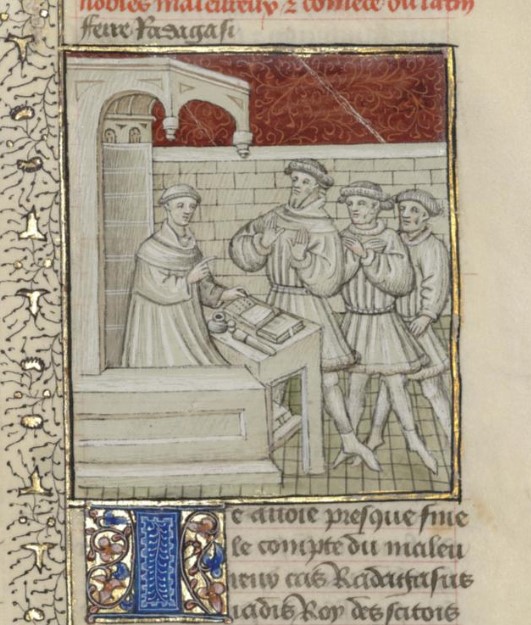 nobles maleureux & comēce du latin
feire Radagasi
Je auoie presque fine
le compte du maleu
reux cas Radathasus
iadis Roy des scitois